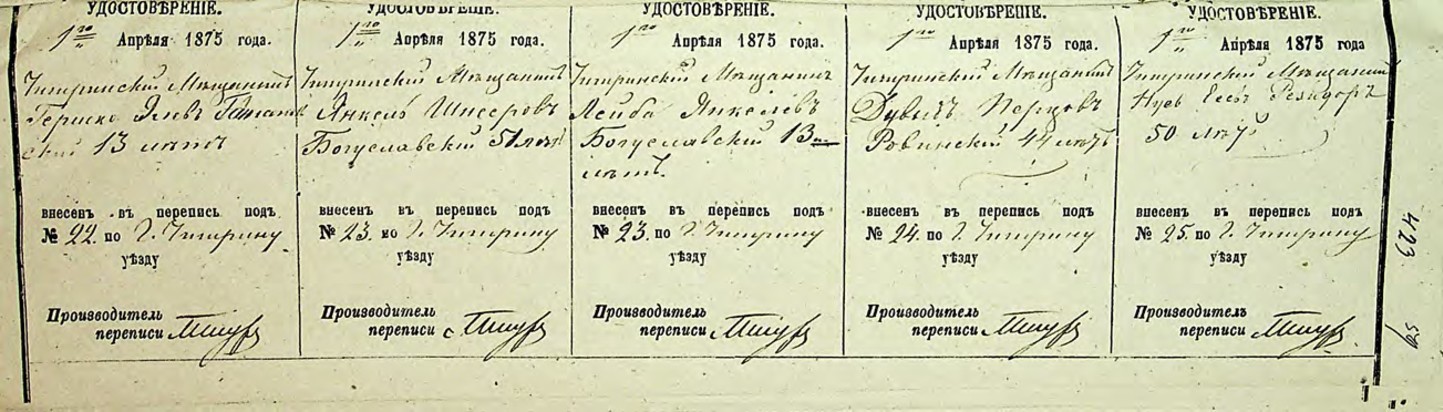 УДОСТОВѢРЕНІЕ.
1го Апрѣля 1875 года.
Чигринский Мѣщанинъ
Гершко
ский 13 лѣтъ
внесенъ въ перепись подъ
№ 22. по Г. Чигрину
уѣзду
Производитель
переписи
УДОСТОВѢРЕНІЕ.
1го Апрѣля 1875 года.
Чигринский Мѣщанинъ
Янкель Шнееровъ
Богуславский 51 лѣтъ
внесенъ въ перепись подъ
№ 23. по Г. Чигрину
уѣзду
Производитель
переписи
УДОСТОВѢРЕНІЕ.
1го Апрѣля 1875 года.
Чигринский Мѣщанинъ
Лейба Янкелевъ
Богуславский 13
лѣтъ.
внесенъ въ перепись подъ
№ 23. по Г. Чигрину
уѣзду
Производитель
переписи
УДОСТОВѢРЕНІЕ.
1го Апрѣля 1875 года.
Чигринский Мѣщанинъ
Дувыдъ Перцовъ
Ровинский 44 лѣтъ
внесенъ въ перепись подъ
№ 24. по Г. Чигрину
уѣзду
Производитель
переписи
УДОСТОВѢРЕНІЕ.
1го Апрѣля 1875 года
Чигринский Мѣщанинъ
50 лѣтъ
внесенъ въ перепись подъ
№ 25. по Г. Чигрину
уѣзду
Производитель
переписи
423
59